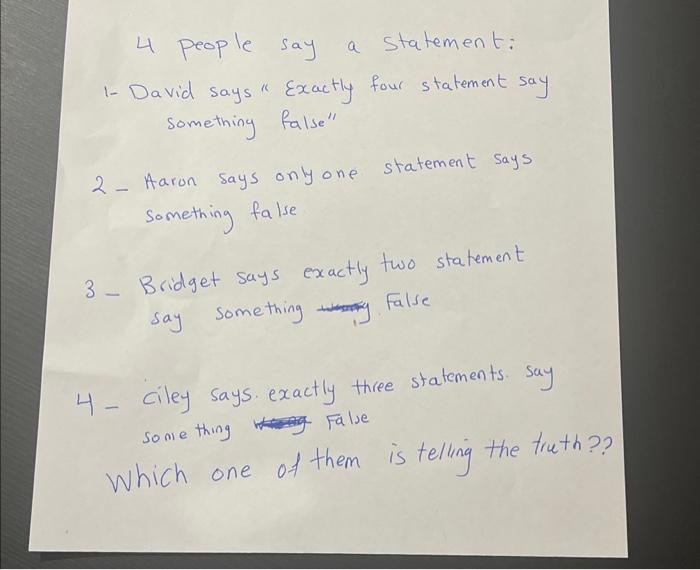 4 people say a statement:
1- David says " Exactly four statement say
something false"
2- Aaron says only one statement says
something false
3- Bridget says exactly two statement
say something False
4- Ciley says. exactly three statements. say
something False
Which one of them is telling the truth??